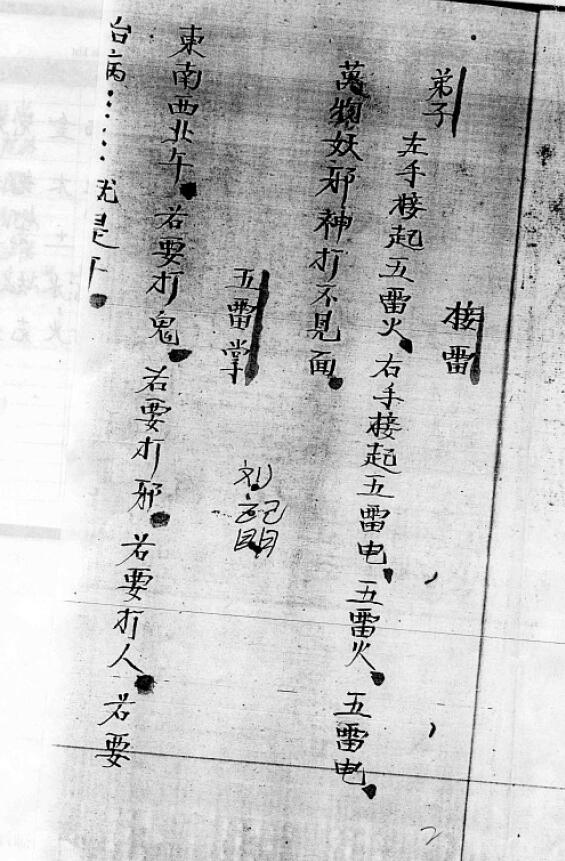 接雷
弟子
左手接起五雷火、右手接起五雷电、五雷火、五雷电、
萬物妖邪神打不見面、
五雷掌
東南西北午、若要打鬼、若要打邪、若要打人、若要
治病……就是午、